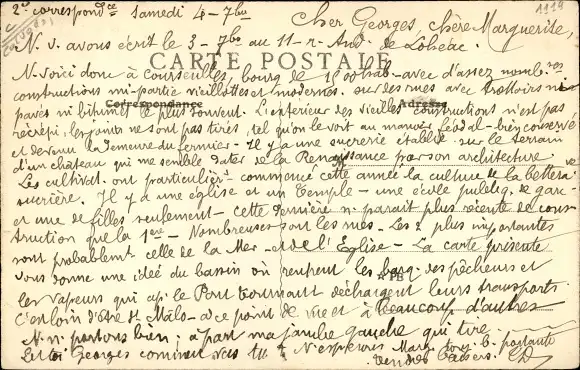 2e correspondce Samedi 4 - 7bre
1919
Cher Georges, chère Marguerite,
N. v. avons écrit le 3 - 7bre au 11 - r. And. de Lohéac.
CARTE POSTALE
N. voici donc à Courseulles, bourg de 1500 hab - avec d'assez nombses
constructions mi-partie vieillottes et modernes. sur des rues avec trottoirs ni
Correspondance
Adresse
pavés ni bitumés le plus souvent. L'extérieur des vieilles constructions n'est pas
récrépi, les joints ne sont pas tirés, tel qu'on le voit au manoir féodal - bien conservé
et devenu la demeure du fermier - Il y a une sucrerie établie sur le terrain
d'un château qui me semble dater de la Renaissance par son architecture
Les cultivat. ont particulièrt commencé cette année la culture de la bettera
sucrière. Il y a une église et un Temple - une école publiq. de garç-
et une de filles seulement - cette dernière n. paraît plus récente de cons-
truction que la 1ère - Nombreuses sont les rues - Les 2 plus importantes
sont probablemt celle de la Mer - et de l'Eglise - La carte présente
vous donne une idée du bassin où rentrent les barq. des pêcheurs et
les vapeurs qui ap. le Pont tournant déchargent leurs transports
C'est loin d'être St Malo - à ce point de vue et à beaucoup d'autres
N. n. portons bien ; à part ma jambe gauche qui tire.
Et toi Georges comment vas tu ? N. espérons Marg. touj. b. portante
Tendres baisers.